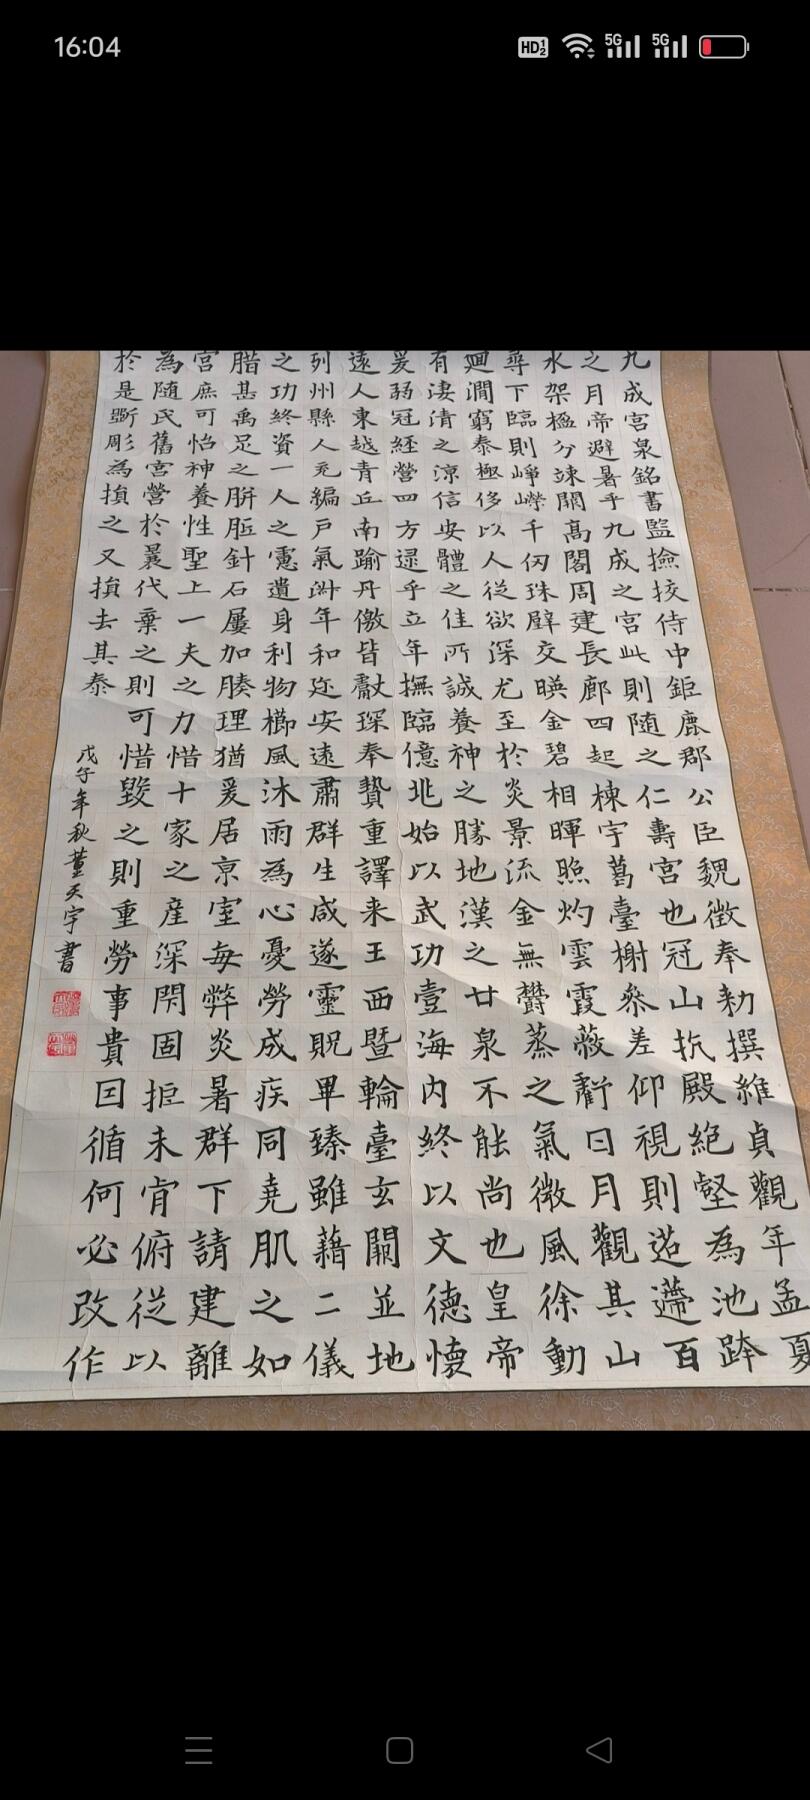 16:04
HD 5G 5G
九成宮泉銘書監撿挍侍中鉅鹿郡公臣魏徵奉勑撰維貞觀年孟夏
之月帝避暑乎九成之宮此則隨之仁壽宮也冠山抗殿絕壑為池跨
水架楹分竦闕高閣周建長廊四起棟宇葛臺榭叅差仰視則迢遰百
尋下臨則崢嶸千仞珠壁交暎金碧相暉照灼雲霞蔽虧日月觀其山
廻澗窮泰極侈以人從欲深尤至於炎景流金無欝蒸之氣微風徐動
有淒清之涼信安體之佳所誠養神之勝地漢之甘泉不能尚也皇帝
爰弱冠經營四方逮乎立年撫臨億兆始以武功壹海内終以文德懷
遠人東越青丘南踰丹儌皆獻琛奉贄重譯来王西暨輪臺玄闕並地
列州縣人充編戶氣淑年和迩安遠肅群生咸遂靈貺畢臻雖藉二儀
之功終資一人之慮遺身利物櫛風沐雨為心憂勞成疾同堯肌之如
腊甚禹足之胼胝針石屢加腠理猶爰居京室每弊炎暑群下請建離
宮庶可怡神養性聖上一夫之力惜十家之産深閇固拒未肯俯從以
為隨氏舊宮營於曩代棄之則可惜毀之則重勞事貴因循何必改作
於是斵彫為損之又損去其泰
戊子年秋董天宇書